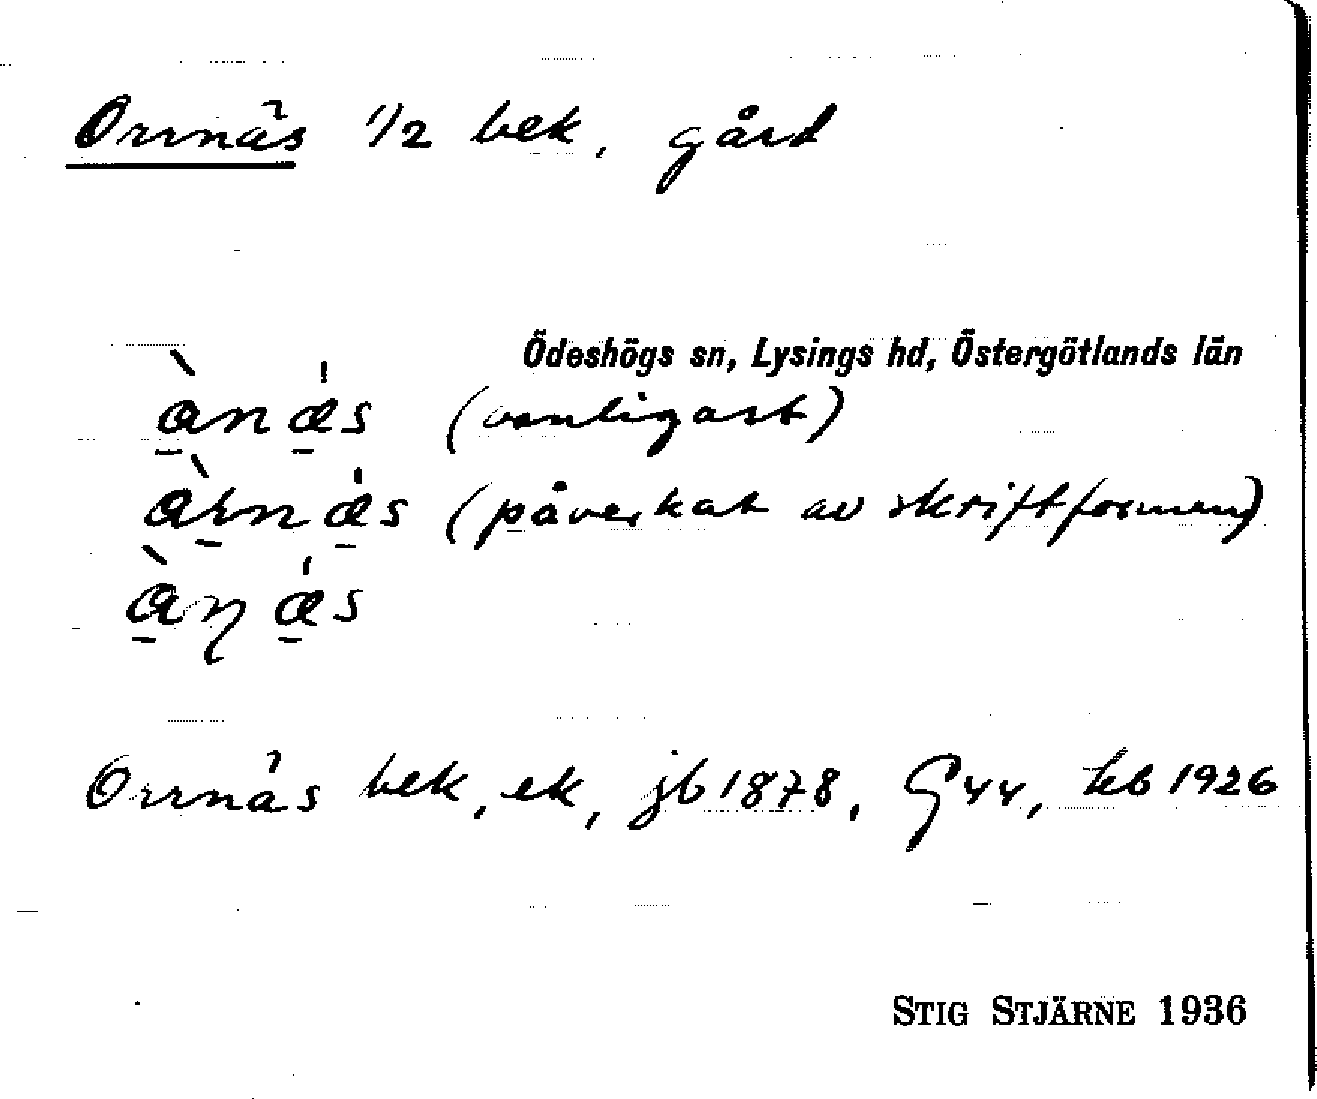 Orrnäs 1/2 bek, gård
Ödeshögs sn, Lysings hd, Östergötlands län
ànǽs (vanligast)
àrnǽs (påverkat av skriftformen)
àŋǽs
Orrnäs bek, ek, jb 1878, G44, kb 1926
STIG STJÄRNE 1936